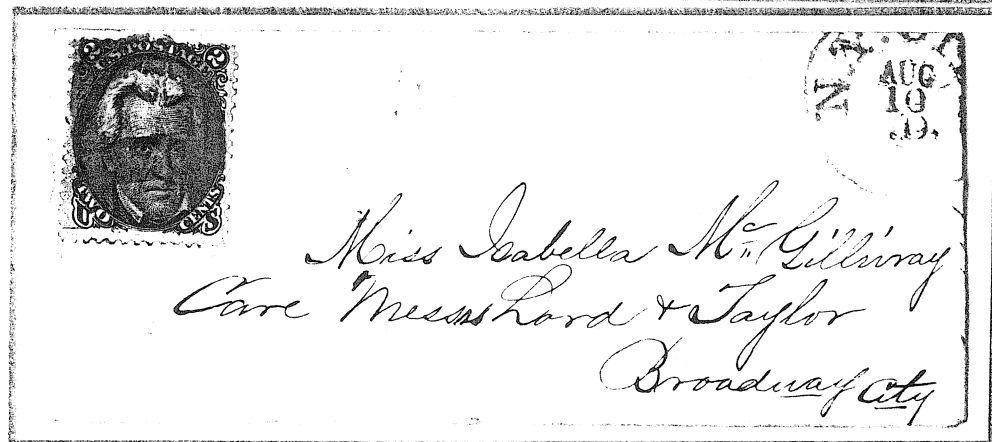 2 POSTAGE 2
U TWO CENTS S
N.Y. CI
AUG
10
Miss Isabella Mc Gillivray
Care Messrs Lord & Taylor
Broadway City